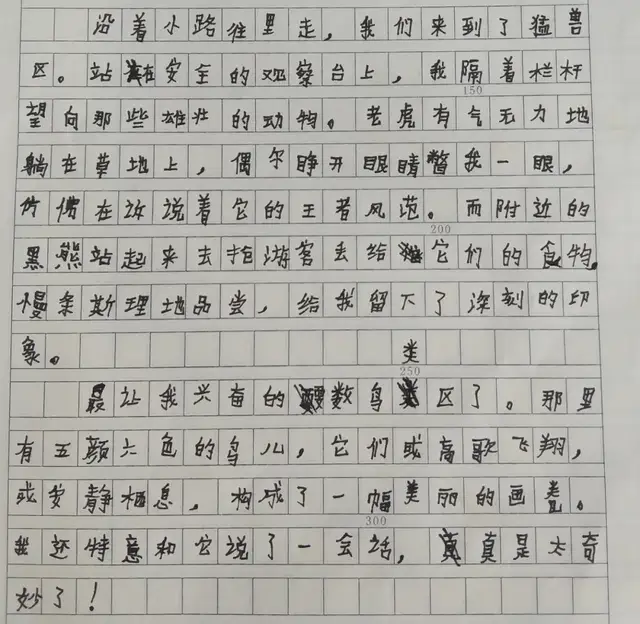 沿着小路往里走，我们来到了猛兽
区。站在安全的观察台上，我隔着栏杆
150
望向那些雄壮的动物。老虎有气无力地
躺在草地上，偶尔睁开眼睛瞥我一眼，
仿佛在诉说着它的王者风范。而附近的
200
黑熊站起来去抢游客丢给它们的食物，
慢条斯理地品尝，给我留下了深刻的印
象。
类
250
最让我兴奋的数鸟区了。那里
有五颜六色的鸟儿，它们或高歌飞翔，
或安静栖息，构成了一幅美丽的画卷。
300
我还特意和它说了一会话，真是太奇
妙了！